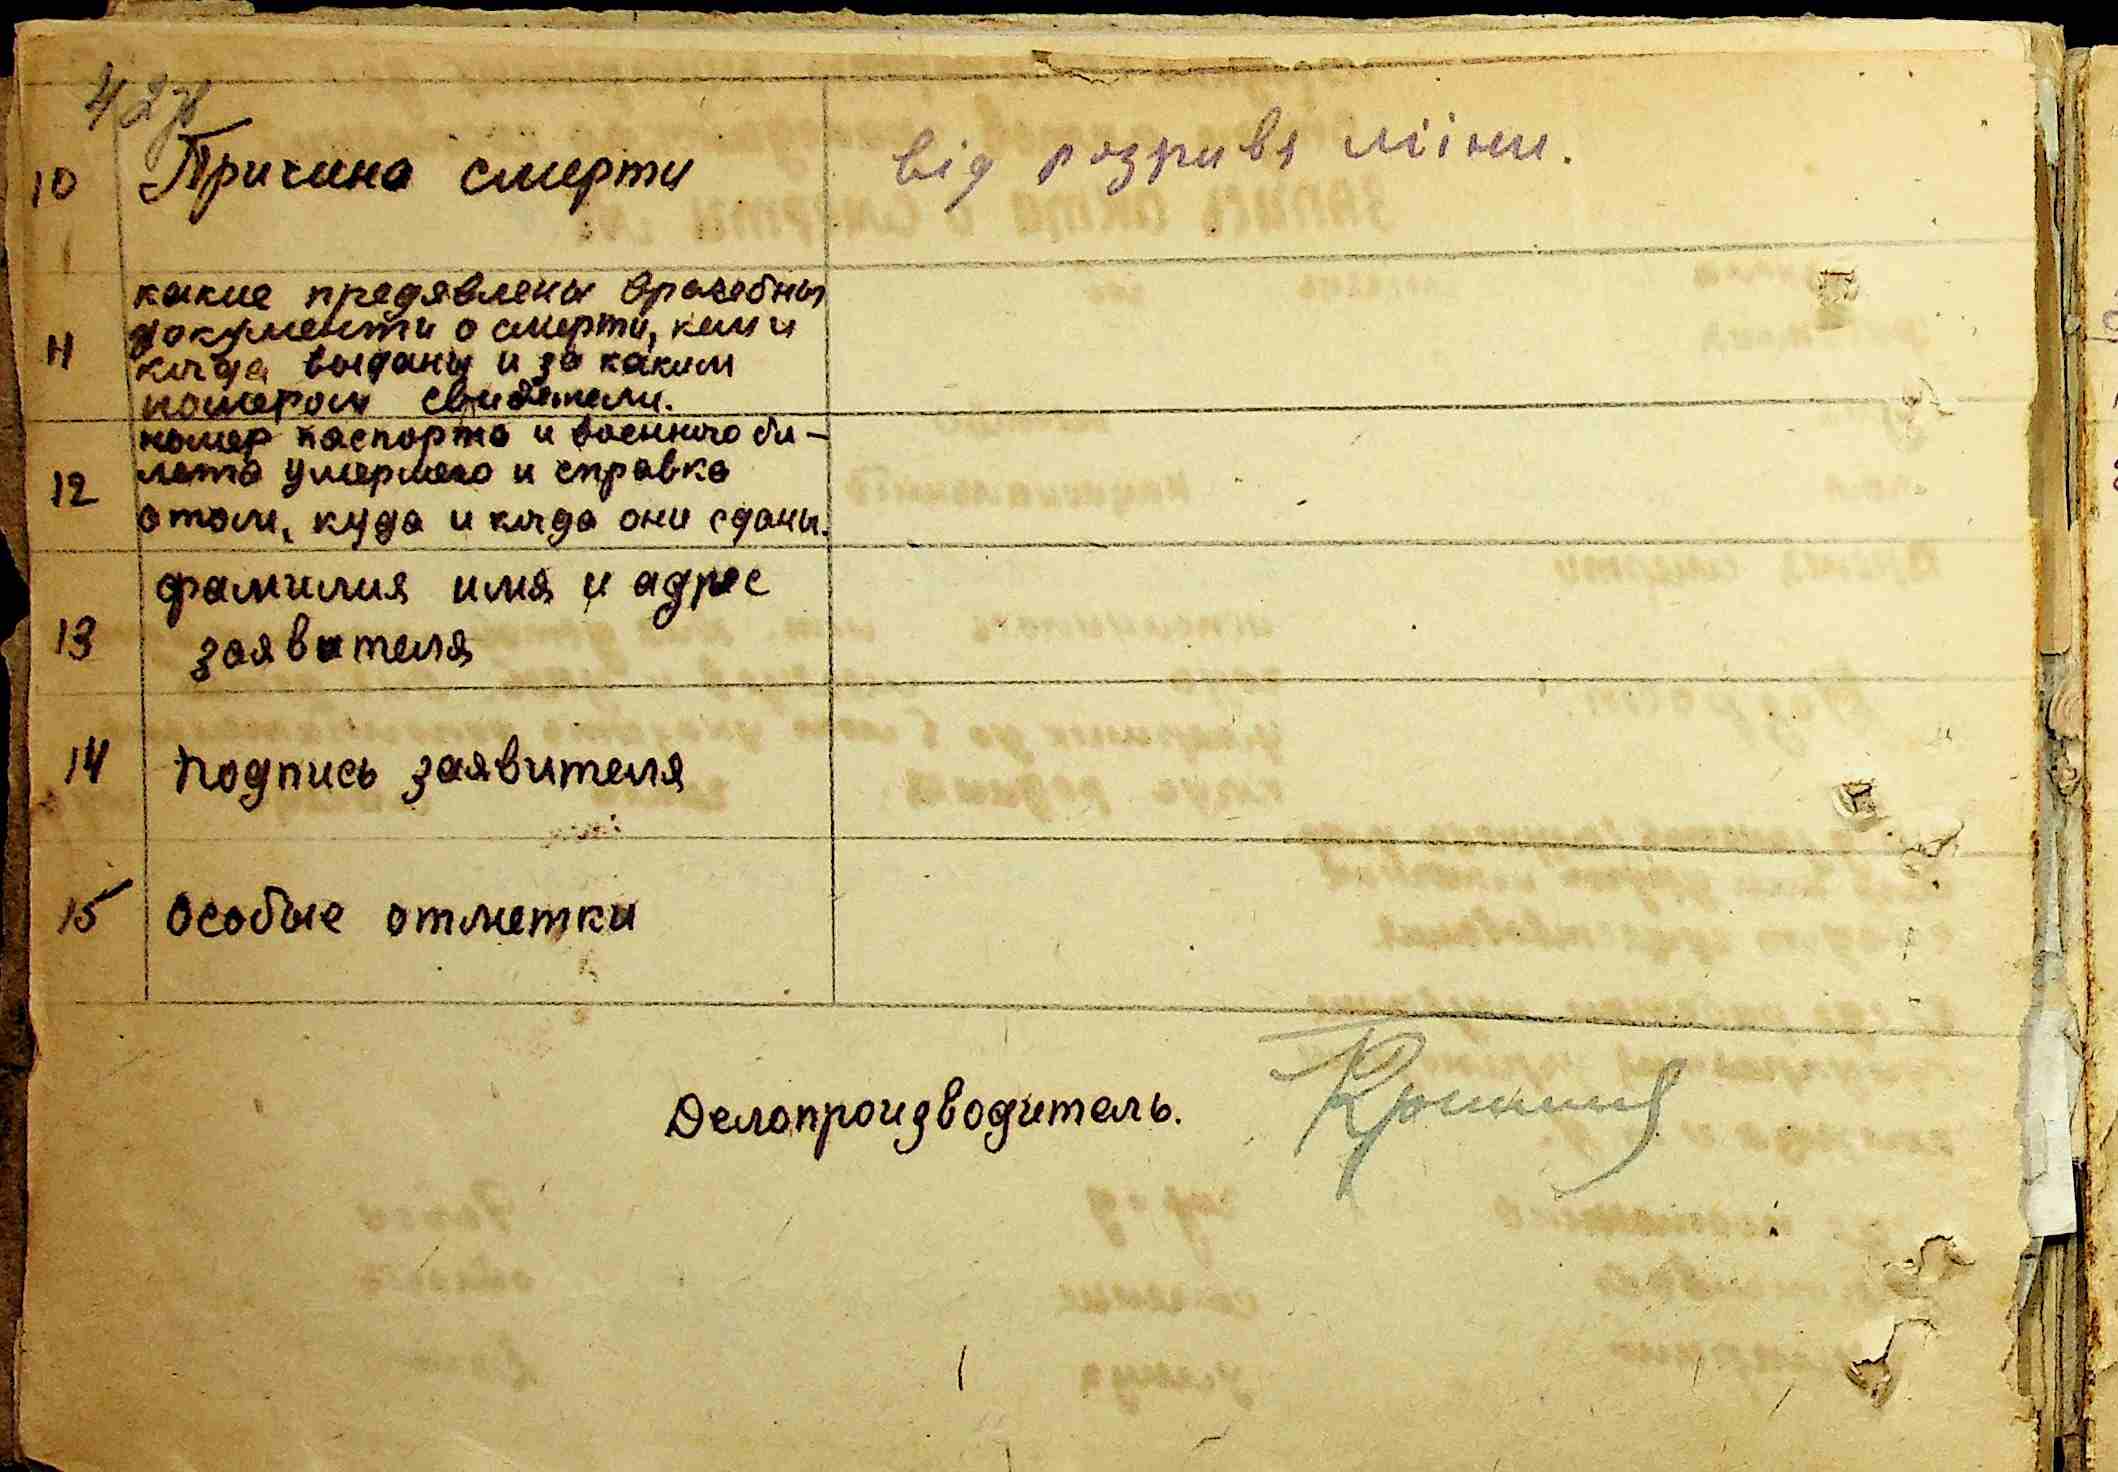 10 Причина смерти від розрива міни.
какие предявлены врачебны
11 документи о смерти, кем и
когда выданы и за каким
номером свидетели.
номер паспорта и военного би-
12 лета умершего и справка
отом, куда и когда они сданы.
фамилия имя и адрес
13 заявителя
14 подпись заявителя
15 особые отметки
Делопроизводитель.